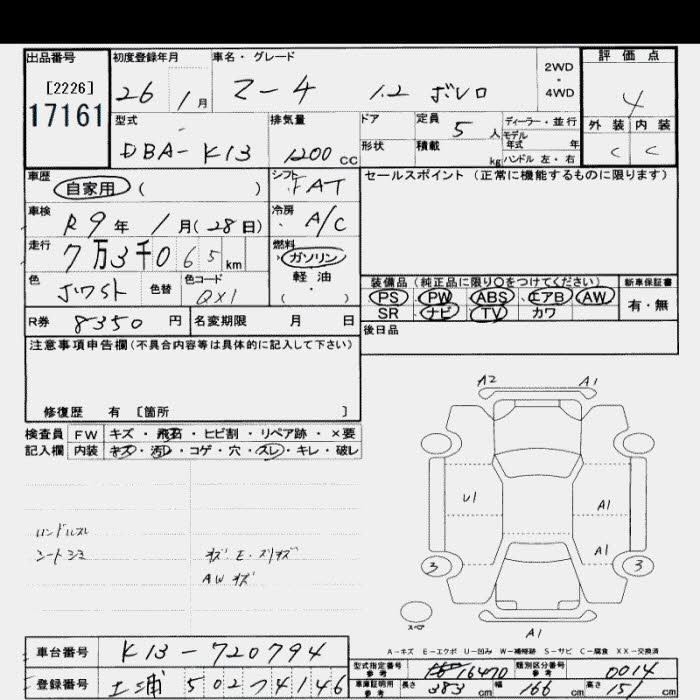 出品番号 初度登録年月 車名・グレード 評価点
[2226] 26年 1月 マーチ 1.2 ボレロ 2WD・4WD 4
17161
型式 排気量 ドア 定員 5人 ディーラー・並行 外装 内装
DBA-K13 1200cc 形状 積載 kg モデル年式 年 ハンドル 左・右 C C
車歴 自家用 ( ) シフト FAT セールスポイント (正常に機能するものに限ります)
車検 R9年 1月(28日) 冷房 A/C
走行 7万3千065km 燃料 ガソリン
色 色替 色コード QX1 軽油 ( )
装備品(純正品に限り〇をつけてください) 新車保証書
PS PW ABS エアB AW 有・無
SR ナビ TV カワ
R券 8350円 名変期限 月 日 後日品
注意事項申告欄(不具合内容等は具体的に記入して下さい)
修復歴 有 [箇所 ]
検査員 FW キズ・飛石・ヒビ割・リペア跡・×要
記入欄 内装 キズ・汚れ・コゲ・穴・スレ・キレ・破レ
ハンドルスレ
シートシミ
キズ E・スリキズ
AWキズ
A2 A1
U1 A1
A1
3 3
スペア
A1
A-キズ E-エクボ U-凹み W-補修跡 S-サビ C-腐食 XX-交換済
車台番号 K13-720794
登録番号 土浦 502 7 4146
型式指定番号 参考 16470 類別区分番号 参考 0014
車庫証明用 参考 長さ 383cm 幅 166cm 高さ 151cm